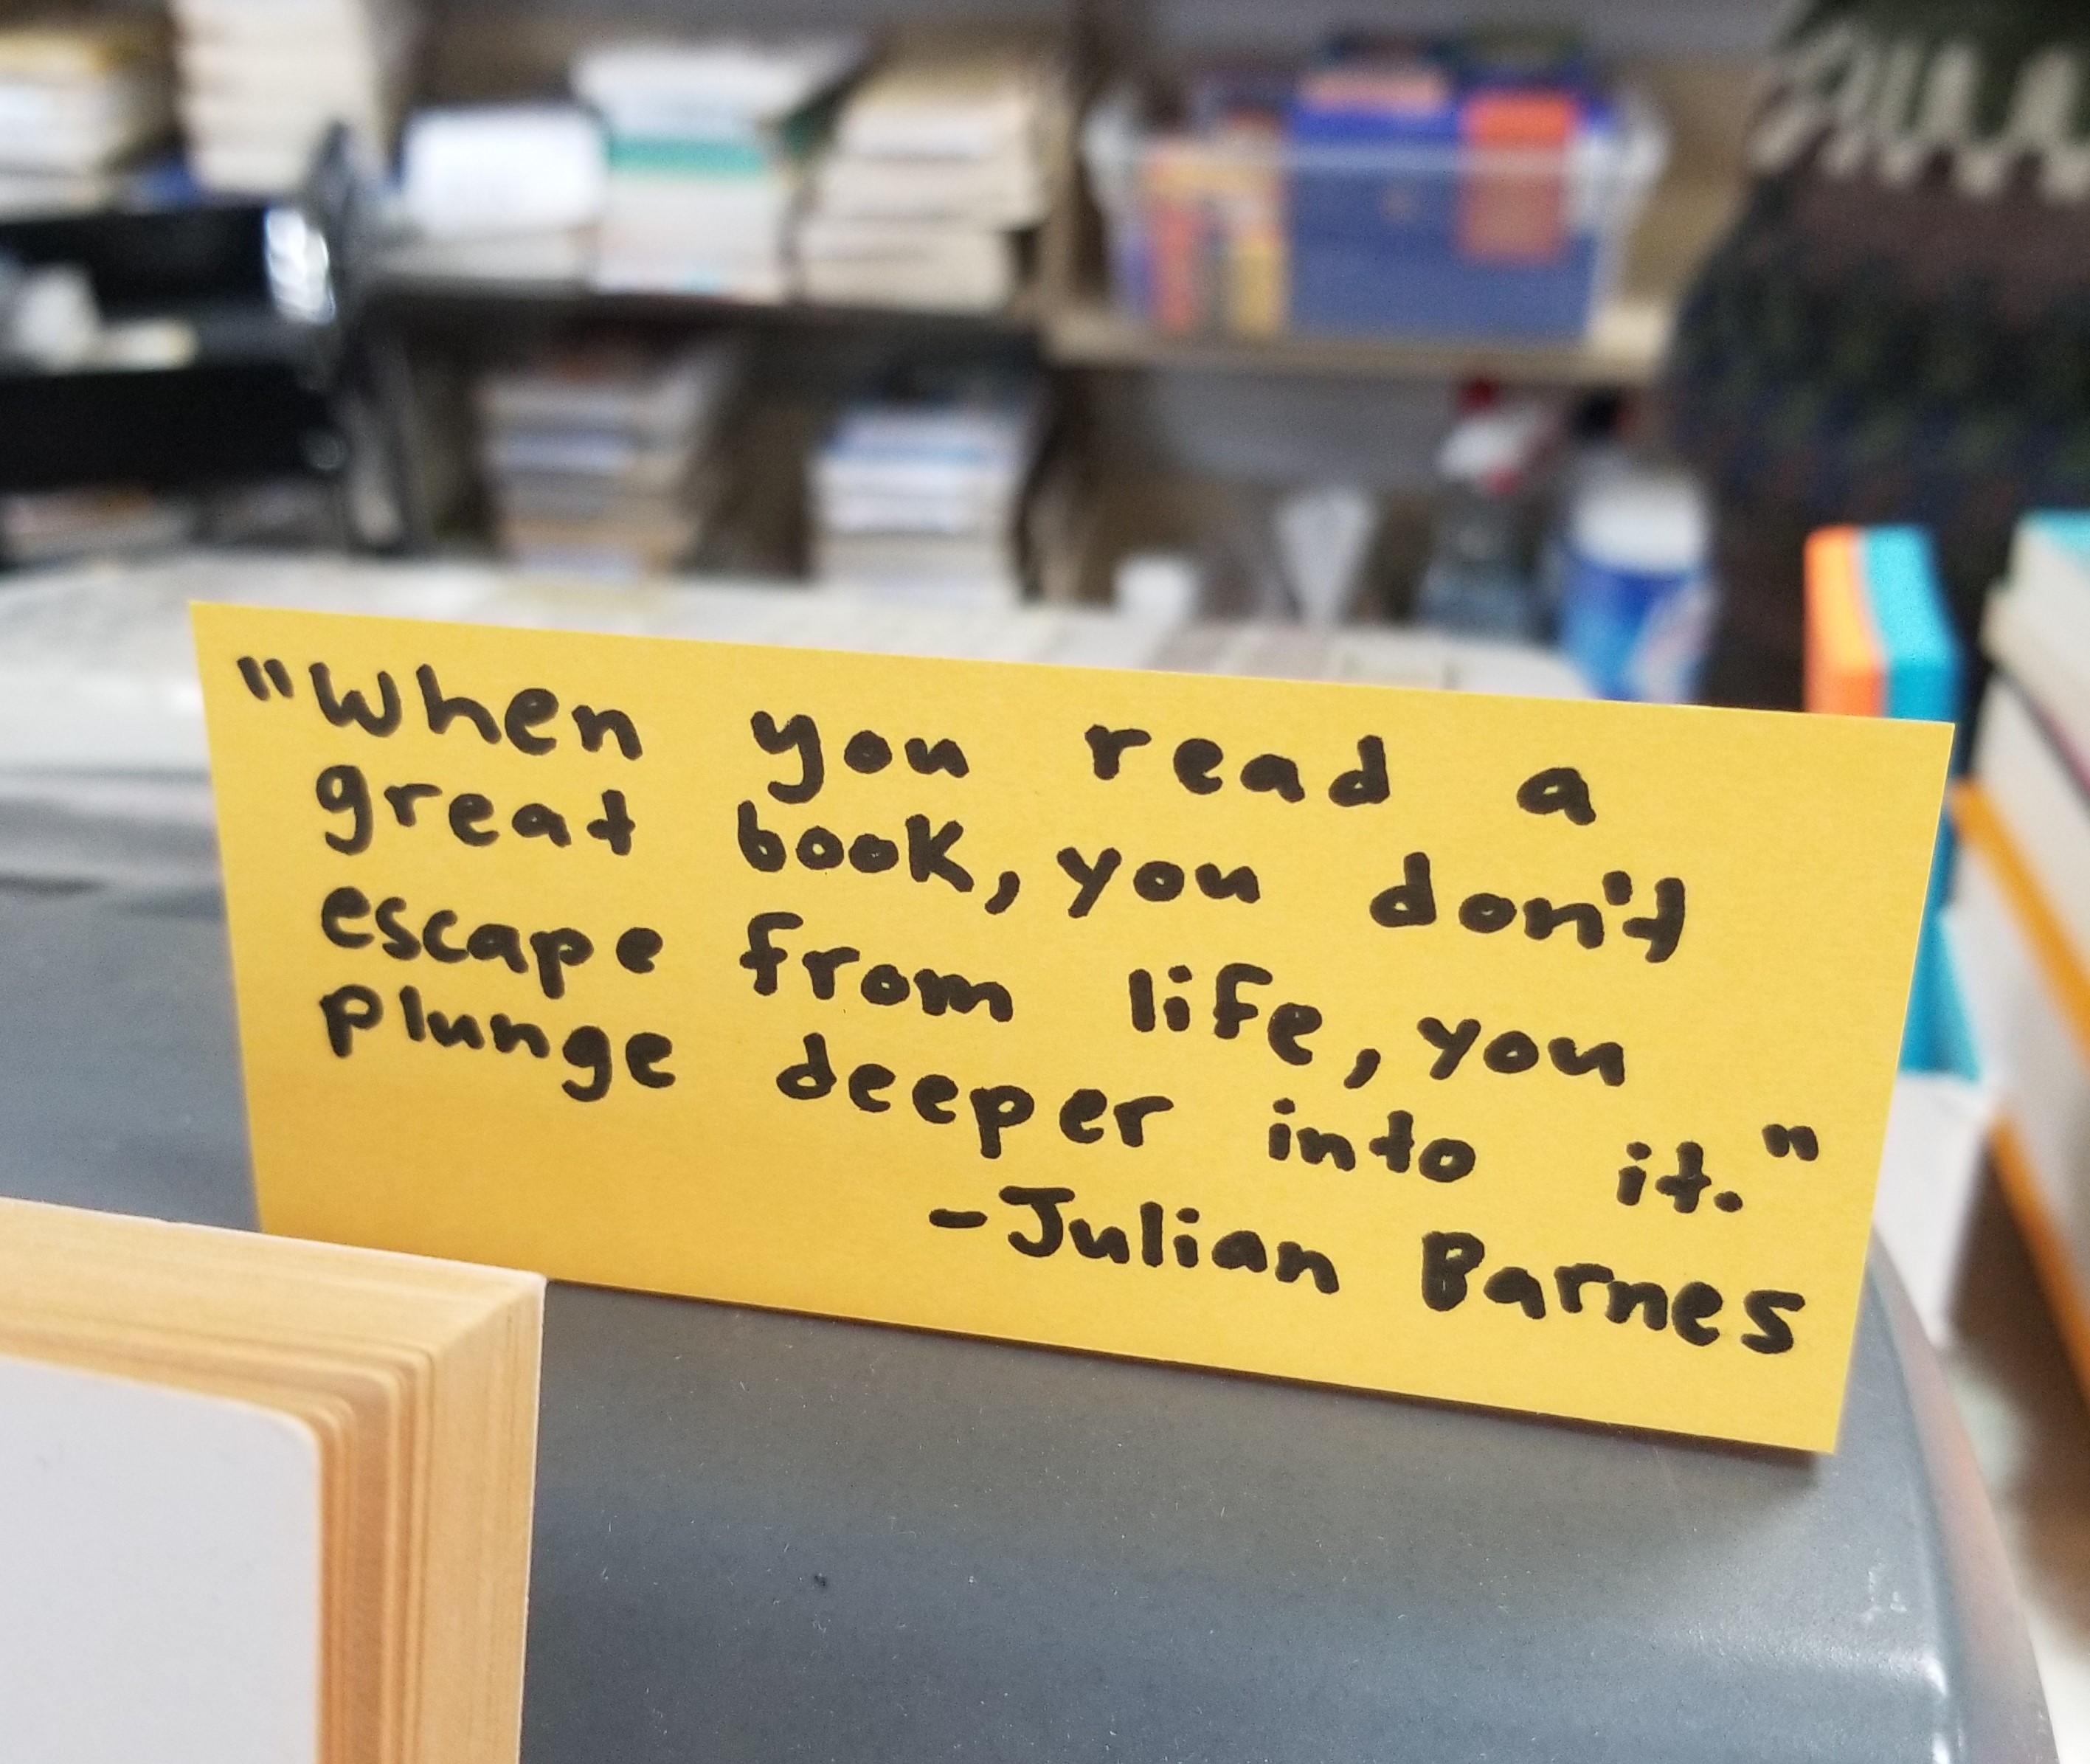 "When you read a
great book, you don't
escape from life, you
plunge deeper into it."
-Julian Barnes